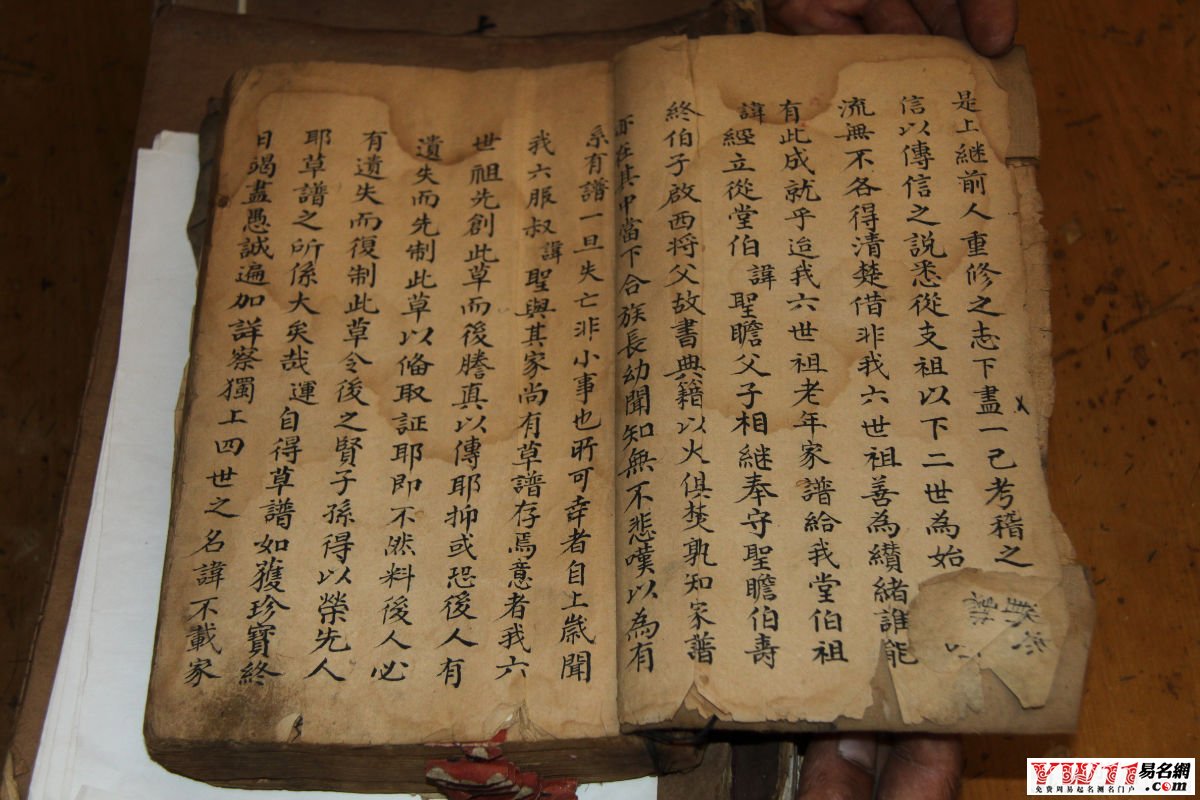 是上継前人重修之志下盡一己考稽之
信以傳信之說悉從支祖以下二世為始
流無不各得清楚借非我六世祖善為纘緒誰能
有此成就乎迨我六世祖老年家譜給我堂伯祖
諱經立從堂伯諱聖瞻父子相継奉守聖瞻伯壽
終伯子啟西将父故書典籍以火俱焚孰知家譜
亦在其中當下合族長幼聞知無不悲嘆以為有
系有譜一旦失亡非小事也所可幸者自上歲聞
我六服叔諱聖與其家尚有草譜存焉意者我六
世祖先創此草而後謄真以傳耶抑或恐後人有
遺失而先制此草以偹取証耶即不然料後人必
有遺失而復制此草令後之賢子孫得以榮先人
耶草譜之所係大矣哉運自得草譜如獲珍寶終
日竭盡愚誠遍加詳察獨上四世之名諱不載家
易名網
.com
免費周易起名測名門戶